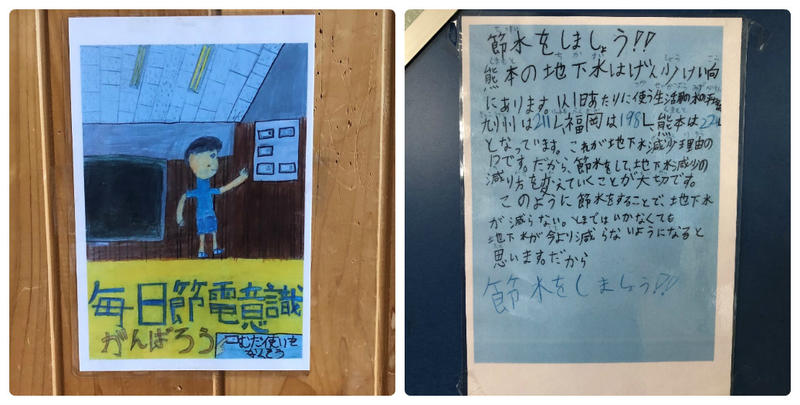 毎日節電意識
がんばろう
むだ使いを
なくそう
節水をしましょう!!
熊本の地下水はげん少けい向
にあります。1人1日あたりに使う生活用の水の平均
九州は211L、福岡は198L、熊本は22
となっています。これが地下水減少理由の
1つです。だから、節水をして、地下水減少の
減り方を変えていくことが大切です。
このように節水をすることで、地下水
が減らない。とまではいかなくても
地下水が今より減らないようになると
思います。だから
節水をしましょう!!